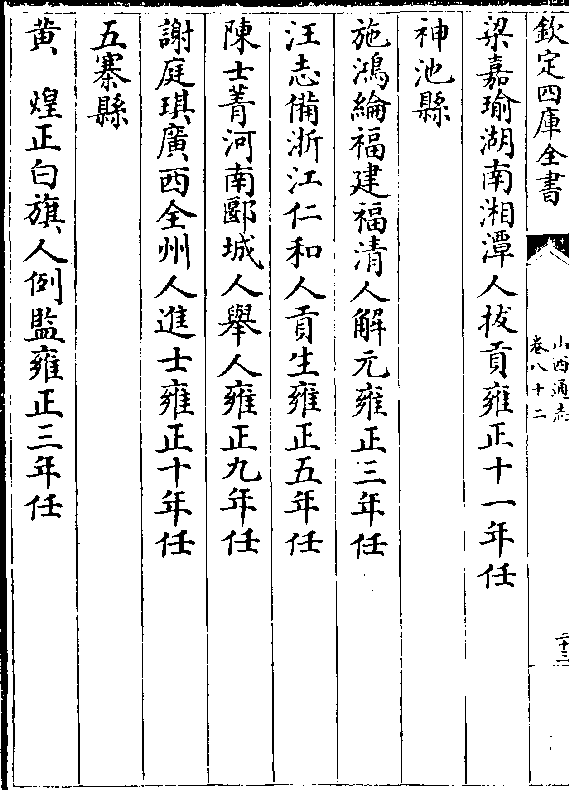 欽定四庫全書
山西通志
卷八十二
二十三
梁嘉瑜湖南湘潭人拔貢雍正十一年任
神池縣
施鴻綸福建福清人解元雍正三年任
汪志備浙江仁和人貢生雍正五年任
陳士菁河南郾城人舉人雍正九年任
謝庭琪廣西全州人進士雍正十年任
五寨縣
黃　煌正白旗人例監雍正三年任